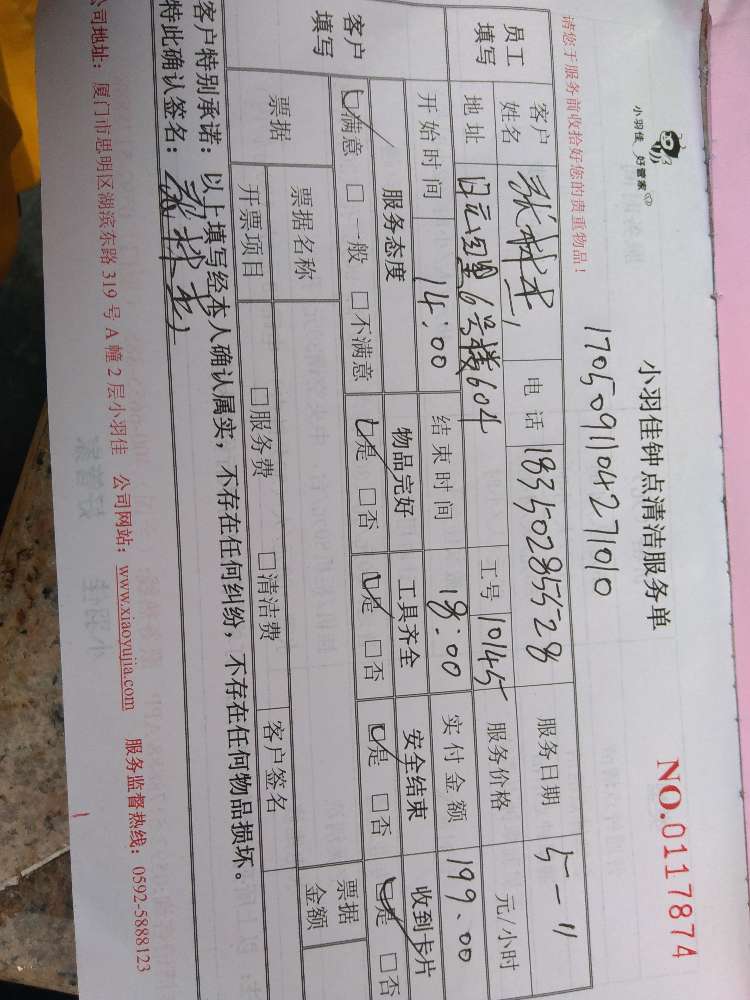 小羽佳 好管家
小羽佳钟点清洁服务单
NO.0117874
1705091104271010
请您于服务前收拾好您的贵重物品!
员工填写
客户姓名 电话 18350285528 服务日期 5-11
地址 6号楼604 工号 10145 服务价格 元/小时
开始时间 14:00 结束时间 18:00 实付金额 199.00
客户填写
服务态度 物品完好 工具齐全 安全结束 收到卡片
☑满意 □一般 □不满意 ☑是 □否 ☑是 □否 ☑是 □否 ☑是 □否
票据 票据名称 票据金额
开票项目 □服务费 □清洁费 客户签名
客户特别承诺:以上填写经本人确认属实,不存在任何纠纷,不存在任何物品损坏。
特此确认签名:
公司地址:厦门市思明区湖滨东路319号A幢2层小羽佳 公司网站:www.xiaoyujia.com 服务监督热线:0592-5888123